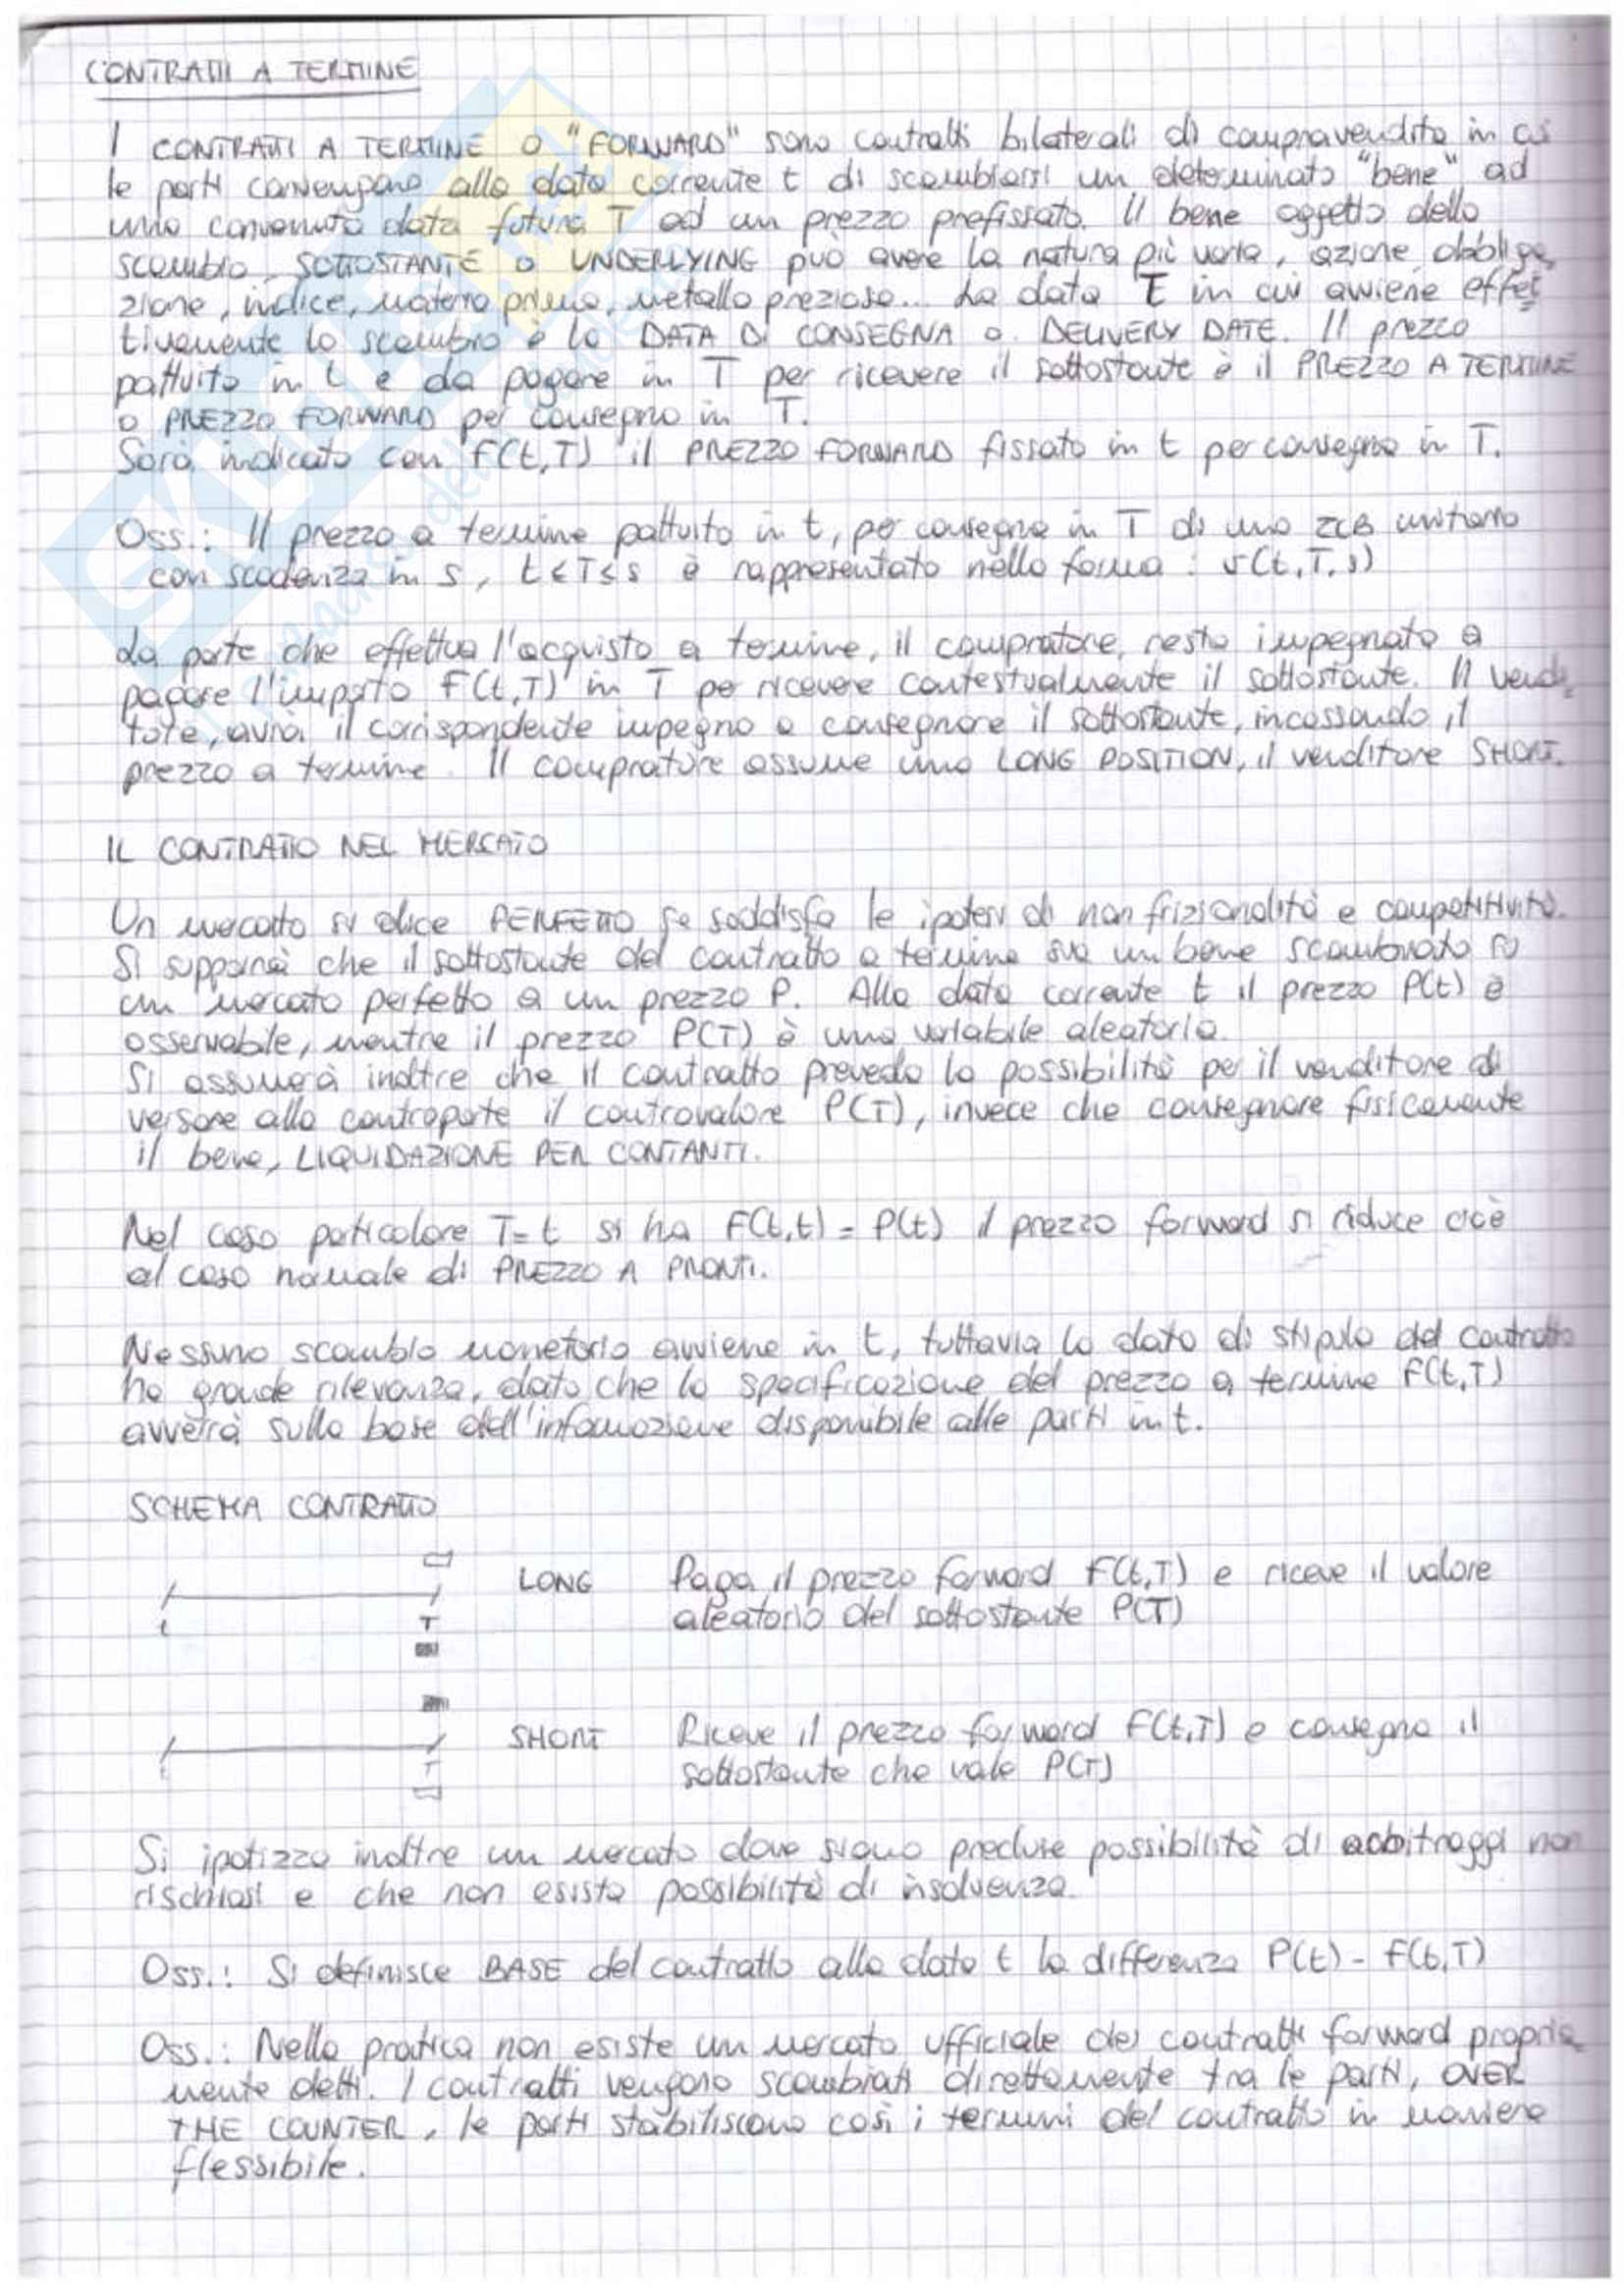 CONTRATTI A TERMINE
I CONTRATTI A TERMINE O "FORWARD" sono contratti bilaterali di compravendita in cui
le parti convengono alla data corrente t di scambiarsi un determinato "bene" ad
una convenuta data futura T ad un prezzo prefissato. Il bene oggetto dello
scambio, SOTTOSTANTE o UNDERLYING può avere la natura più varia, azione, obbliga
zione, indice, materia prima, metallo prezioso... La data T in cui avviene effet
tivamente lo scambio è la DATA DI CONSEGNA o DELIVERY DATE. Il prezzo
pattuito in t e da pagare in T per ricevere il sottostante è il PREZZO A TERMINE
o PREZZO FORWARD per consegna in T.
Sarà indicato con F(t,T) il PREZZO FORWARD fissato in t per consegna in T.
Oss.: Il prezzo a termine pattuito in t, per consegna in T di uno ZCB unitario
con scadenza in s, t≤T≤s è rappresentato nella forma : v(t,T,s)
La parte che effettua l'acquisto a termine, il compratore, resta impegnata a
pagare l'importo F(t,T) in T per ricevere contestualmente il sottostante. Il vendi
tore, avrà il corrispondente impegno a consegnare il sottostante, incassando il
prezzo a termine. Il compratore assume una LONG POSITION, il venditore SHORT.
IL CONTRATTO NEL MERCATO
Un mercato si dice PERFETTO se soddisfa le ipotesi di non frizionalità e competitività.
Si supporrà che il sottostante del contratto a termine sia un bene scambiato su
un mercato perfetto a un prezzo P. Alla data corrente t il prezzo P(t) è
osservabile, mentre il prezzo P(T) è una variabile aleatoria.
Si assumerà inoltre che il contratto preveda la possibilità per il venditore di
versare alla controparte il controvalore P(T), invece che consegnare fisicamente
il bene, LIQUIDAZIONE PER CONTANTI.
Nel caso particolare T=t si ha F(t,t) = P(t) il prezzo forward si riduce cioè
al caso normale di PREZZO A PRONTI.
Nessuno scambio monetario avviene in t, tuttavia la data di stipula del contratto
ha grande rilevanza, dato che la specificazione del prezzo a termine F(t,T)
avverrà sulla base dell'informazione disponibile alle parti in t.
SCHEMA CONTRATTO
LONG Paga il prezzo forward F(t,T) e riceve il valore
aleatorio del sottostante P(T)
t T
SHORT Riceve il prezzo forward F(t,T) e consegna il
sottostante che vale P(T)
t T
Si ipotizza inoltre un mercato dove siano precluse possibilità di arbitraggi non
rischiosi e che non esista possibilità di insolvenza.
Oss.: Si definisce BASE del contratto alla data t la differenza P(t) - F(t,T)
Oss.: Nella pratica non esiste un mercato ufficiale dei contratti forward propria
mente detti. I contratti vengono scambiati direttamente tra le parti, OVER
THE COUNTER, le parti stabiliscono così i termini del contratto in maniera
flessibile.